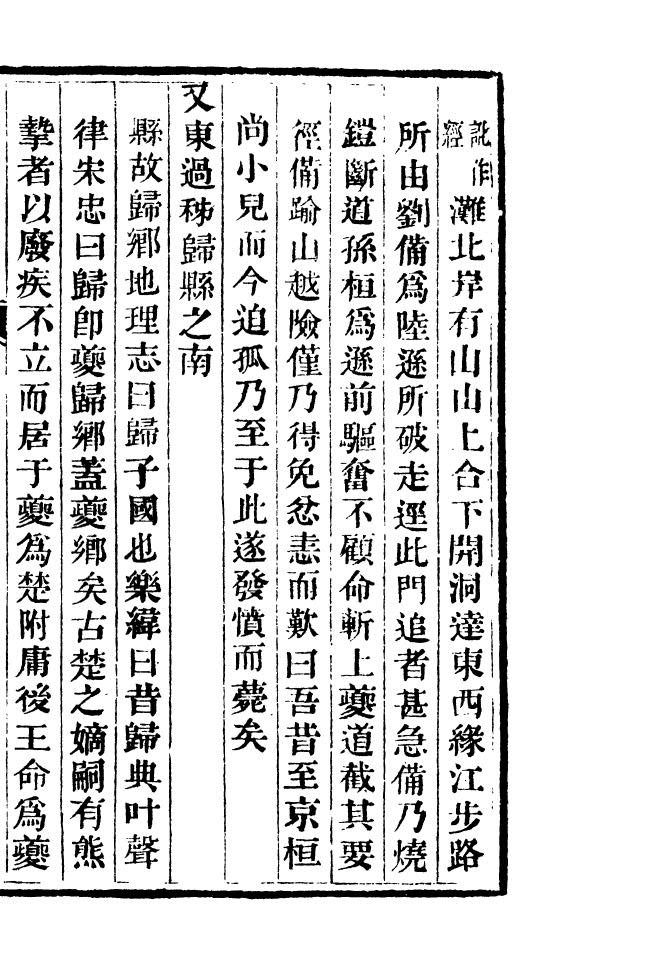 訛作經灘北岸有山山上合下開洞達東西緣江步路
所由劉備爲陸遜所破走逕此門追者甚急備乃燒
鎧斷道孫桓爲遜前驅奮不顧命斬上夔道截其要
徑備踰山越險僅乃得免忿恚而歎曰吾昔至京桓
尚小兒而今迫孤乃至于此遂發憤而薨矣
又東過秭歸縣之南
縣故歸鄉地理志曰歸子國也樂緯曰昔歸典叶聲
律宋忠曰歸卽夔歸鄉蓋夔鄉矣古楚之嫡嗣有熊
摯者以廢疾不立而居于夔爲楚附庸後王命爲夔